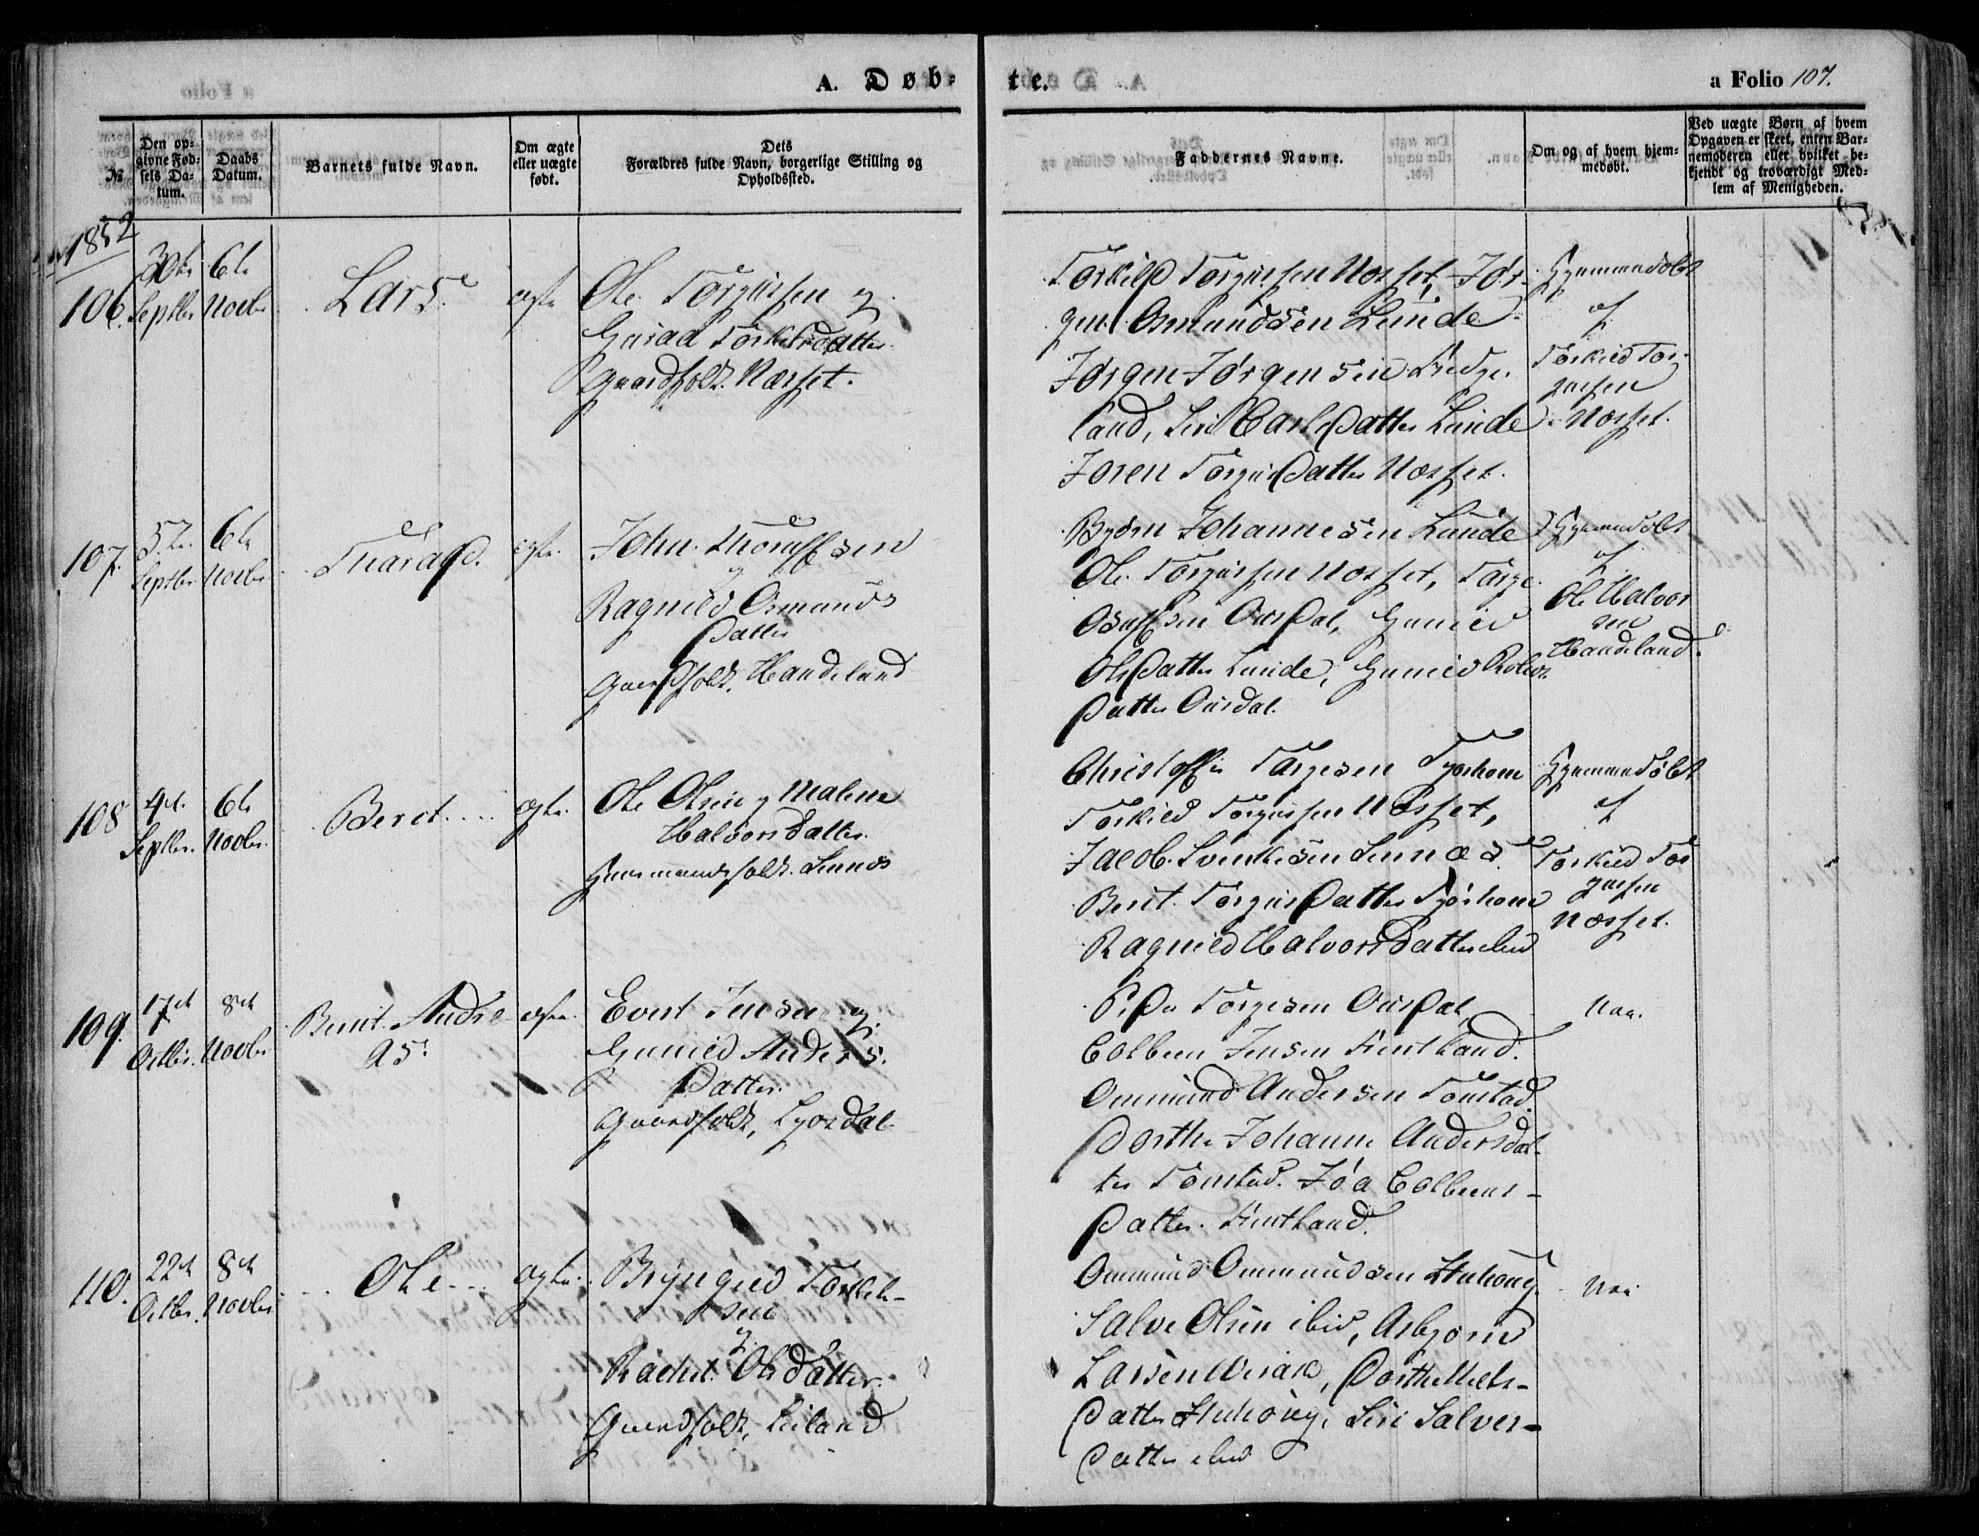 A. Døb-
te.
a Folio 107.
№
Den op-
givne Fød-
sels Da-
tum.
Daabs
Datum.
Barnets fulde Navn.
Om ægte
eller uægte
født.
Dets
Forældres fulde Navn, borgerlige Stilling og
Opholdssted.
Faddernes Navne.
Om og af hvem hjem-
medøbt.
Ved uægte Børn af hvem
Opgaven er skeet, enten Bar-
nemoderen eller hvilket be-
kjendt og troværdigt Med-
lem af Menigheden.
1852
106.
30te
Septbr
6te
Novbr
Lars.
ægte
Ole Torgussen og
Gurid Torkelsdatter
Gaardfolk Næsset.
Torkild Torgussen Næsset, Jør-
gen Osmundsen Lunde
Jørgen Jørgensen
land, Siri Carlsdatter Lunde
Joren Torgusdatter Næsset.
Hjemmedøbt
af
Torkild Tor-
gussen
Næsset.
107.
5te
Septbr
6te
Novbr
Tharald.
ægte.
John
og
Ragnild Osmunds
datter
Gaardfolk, Handeland
Bjørn Johannesen Lunde
Ole Torgussen Næsset, Torge
Osulfsen Ousdal, Gunild
Olsdatter Lunde, Gunild
datter Ousdal.
Hjemmedøbt
af
Ole Halvor
sen
Handeland.
108
4de
Septbr.
6te
Novbr.
Beret
ægte.
Ole Olsen og Malene
Halvorsdatter.
Huusmandsfolk
Christoffer Torgesen Tjorhom
Torkild Torgussen Næsset,
Jacob
Berit Torgusdatter Tjorhom
Ragnild Halvorsdatter ibid
Hjemmedøbt
af
Torkild Tor
gussen
Næsset.
109.
17de
Octbr.
8de
Novbr
Bernt Andre
as.
ægte.
Evert Jensen og
Gunild Anders
datter.
Gaardfolk, Lyosdal
Peder Torgesen Ousdal,
Colbeen Jensen Fintland.
Ommund Andersen Tonstad.
Dorthe Johanne Andersdat-
ter Tonstad. Jøa Colbeens-
datter Fintland.
Nei.
110.
22de
Octbr.
8de
Novbr
Ole
ægte.
Bryngild Torkel-
sen
og
Rachel Olsdatter.
Gaardfolk,
Ommund Ommundsen
Salve Olsen ibid, Asbjørn
Larsen Virak, Dorthe Niels-
datter
Siri Salves-
datter ibid
Nei